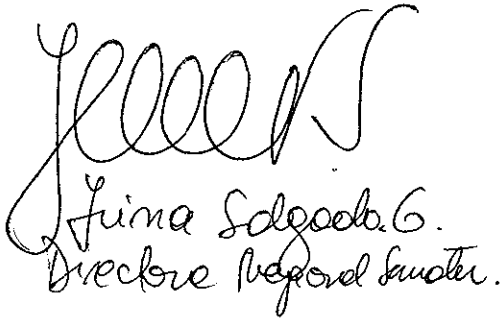 Irina Salgado. G.
Directora Regional Senator.